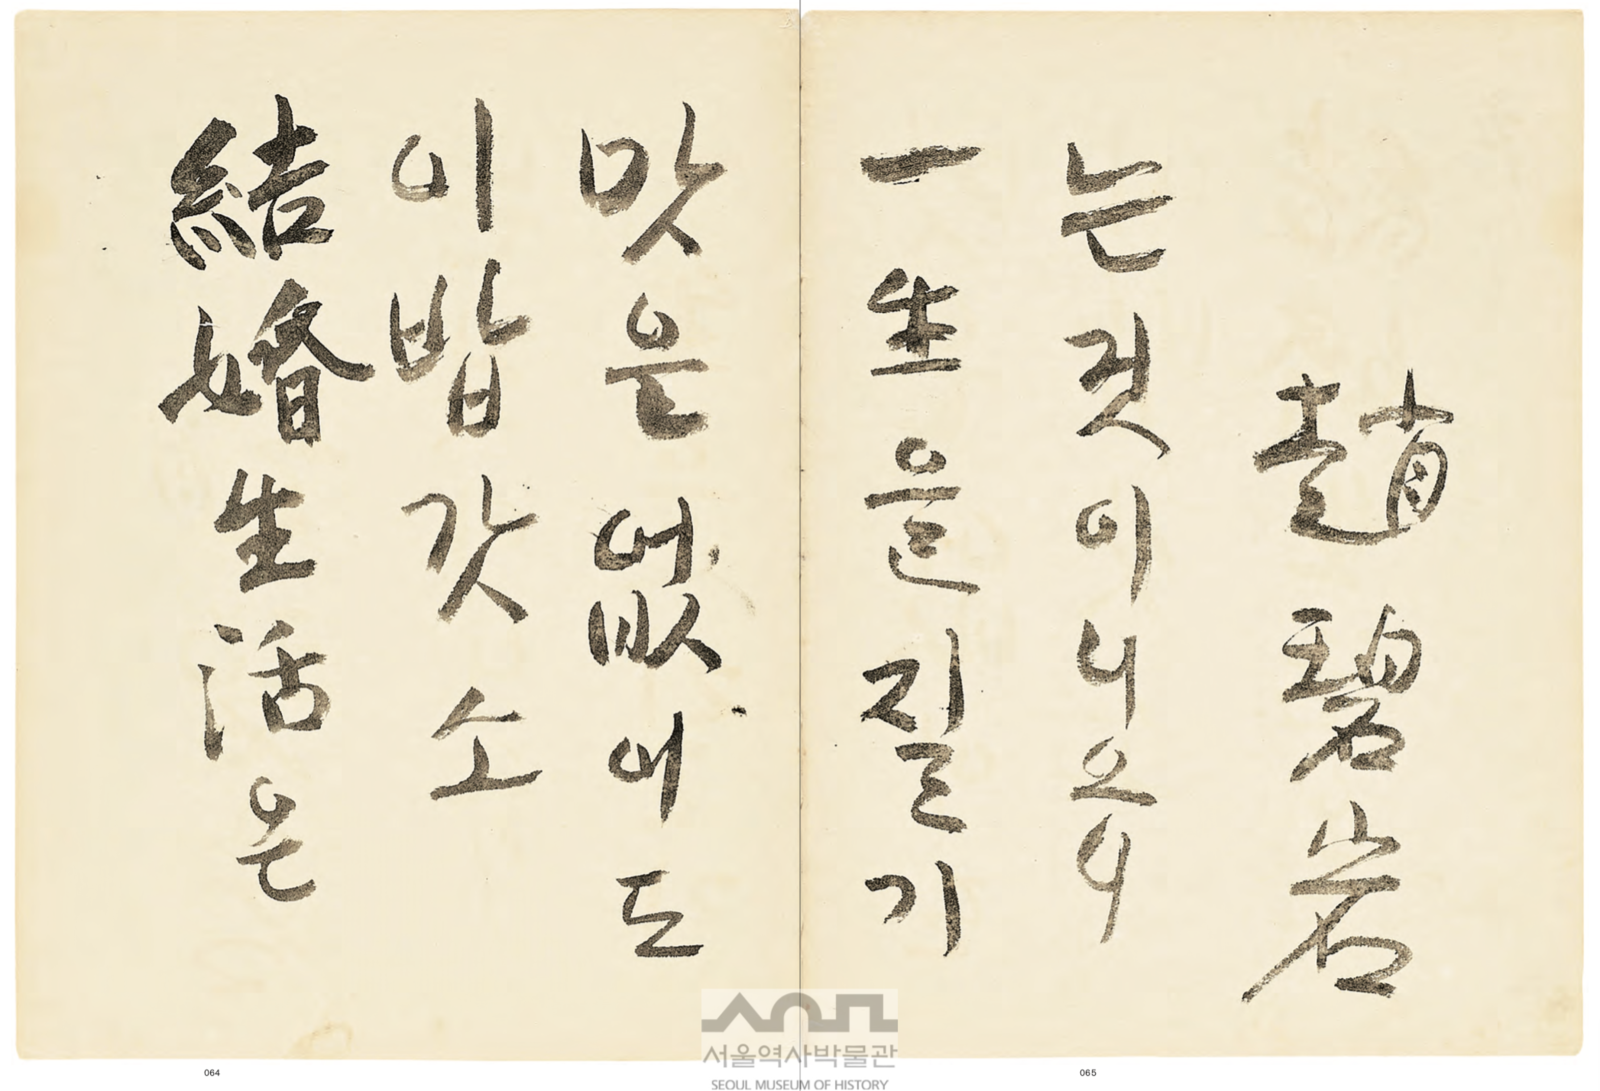 結婚生活은
이밥갓소
맛은없어도
一生을질기
는것이니오니
趙碧岩
서울역사박물관
SEOUL MUSEUM OF HISTORY
064
065